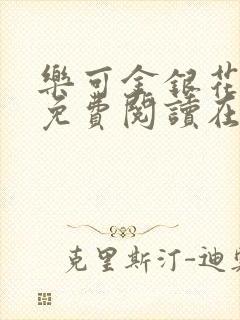 樂可金銀花
免費閱讀在
克里斯汀-迪